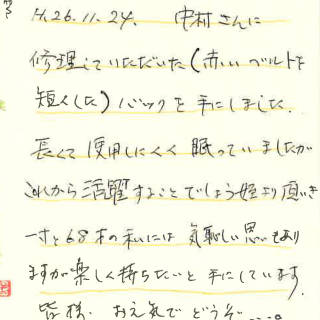 H.26.11.24. 中村さんに
修理していただいた(赤いベルトを
短くした)バックを手にしました.
長くて使用しにくく眠っていましたが
これから活躍することでしょう姪より頂き
一寸と68才の私には気恥しい思いもあり
ますが楽しく持ちたいと手にしています.
皆様. お元気でどうぞ....